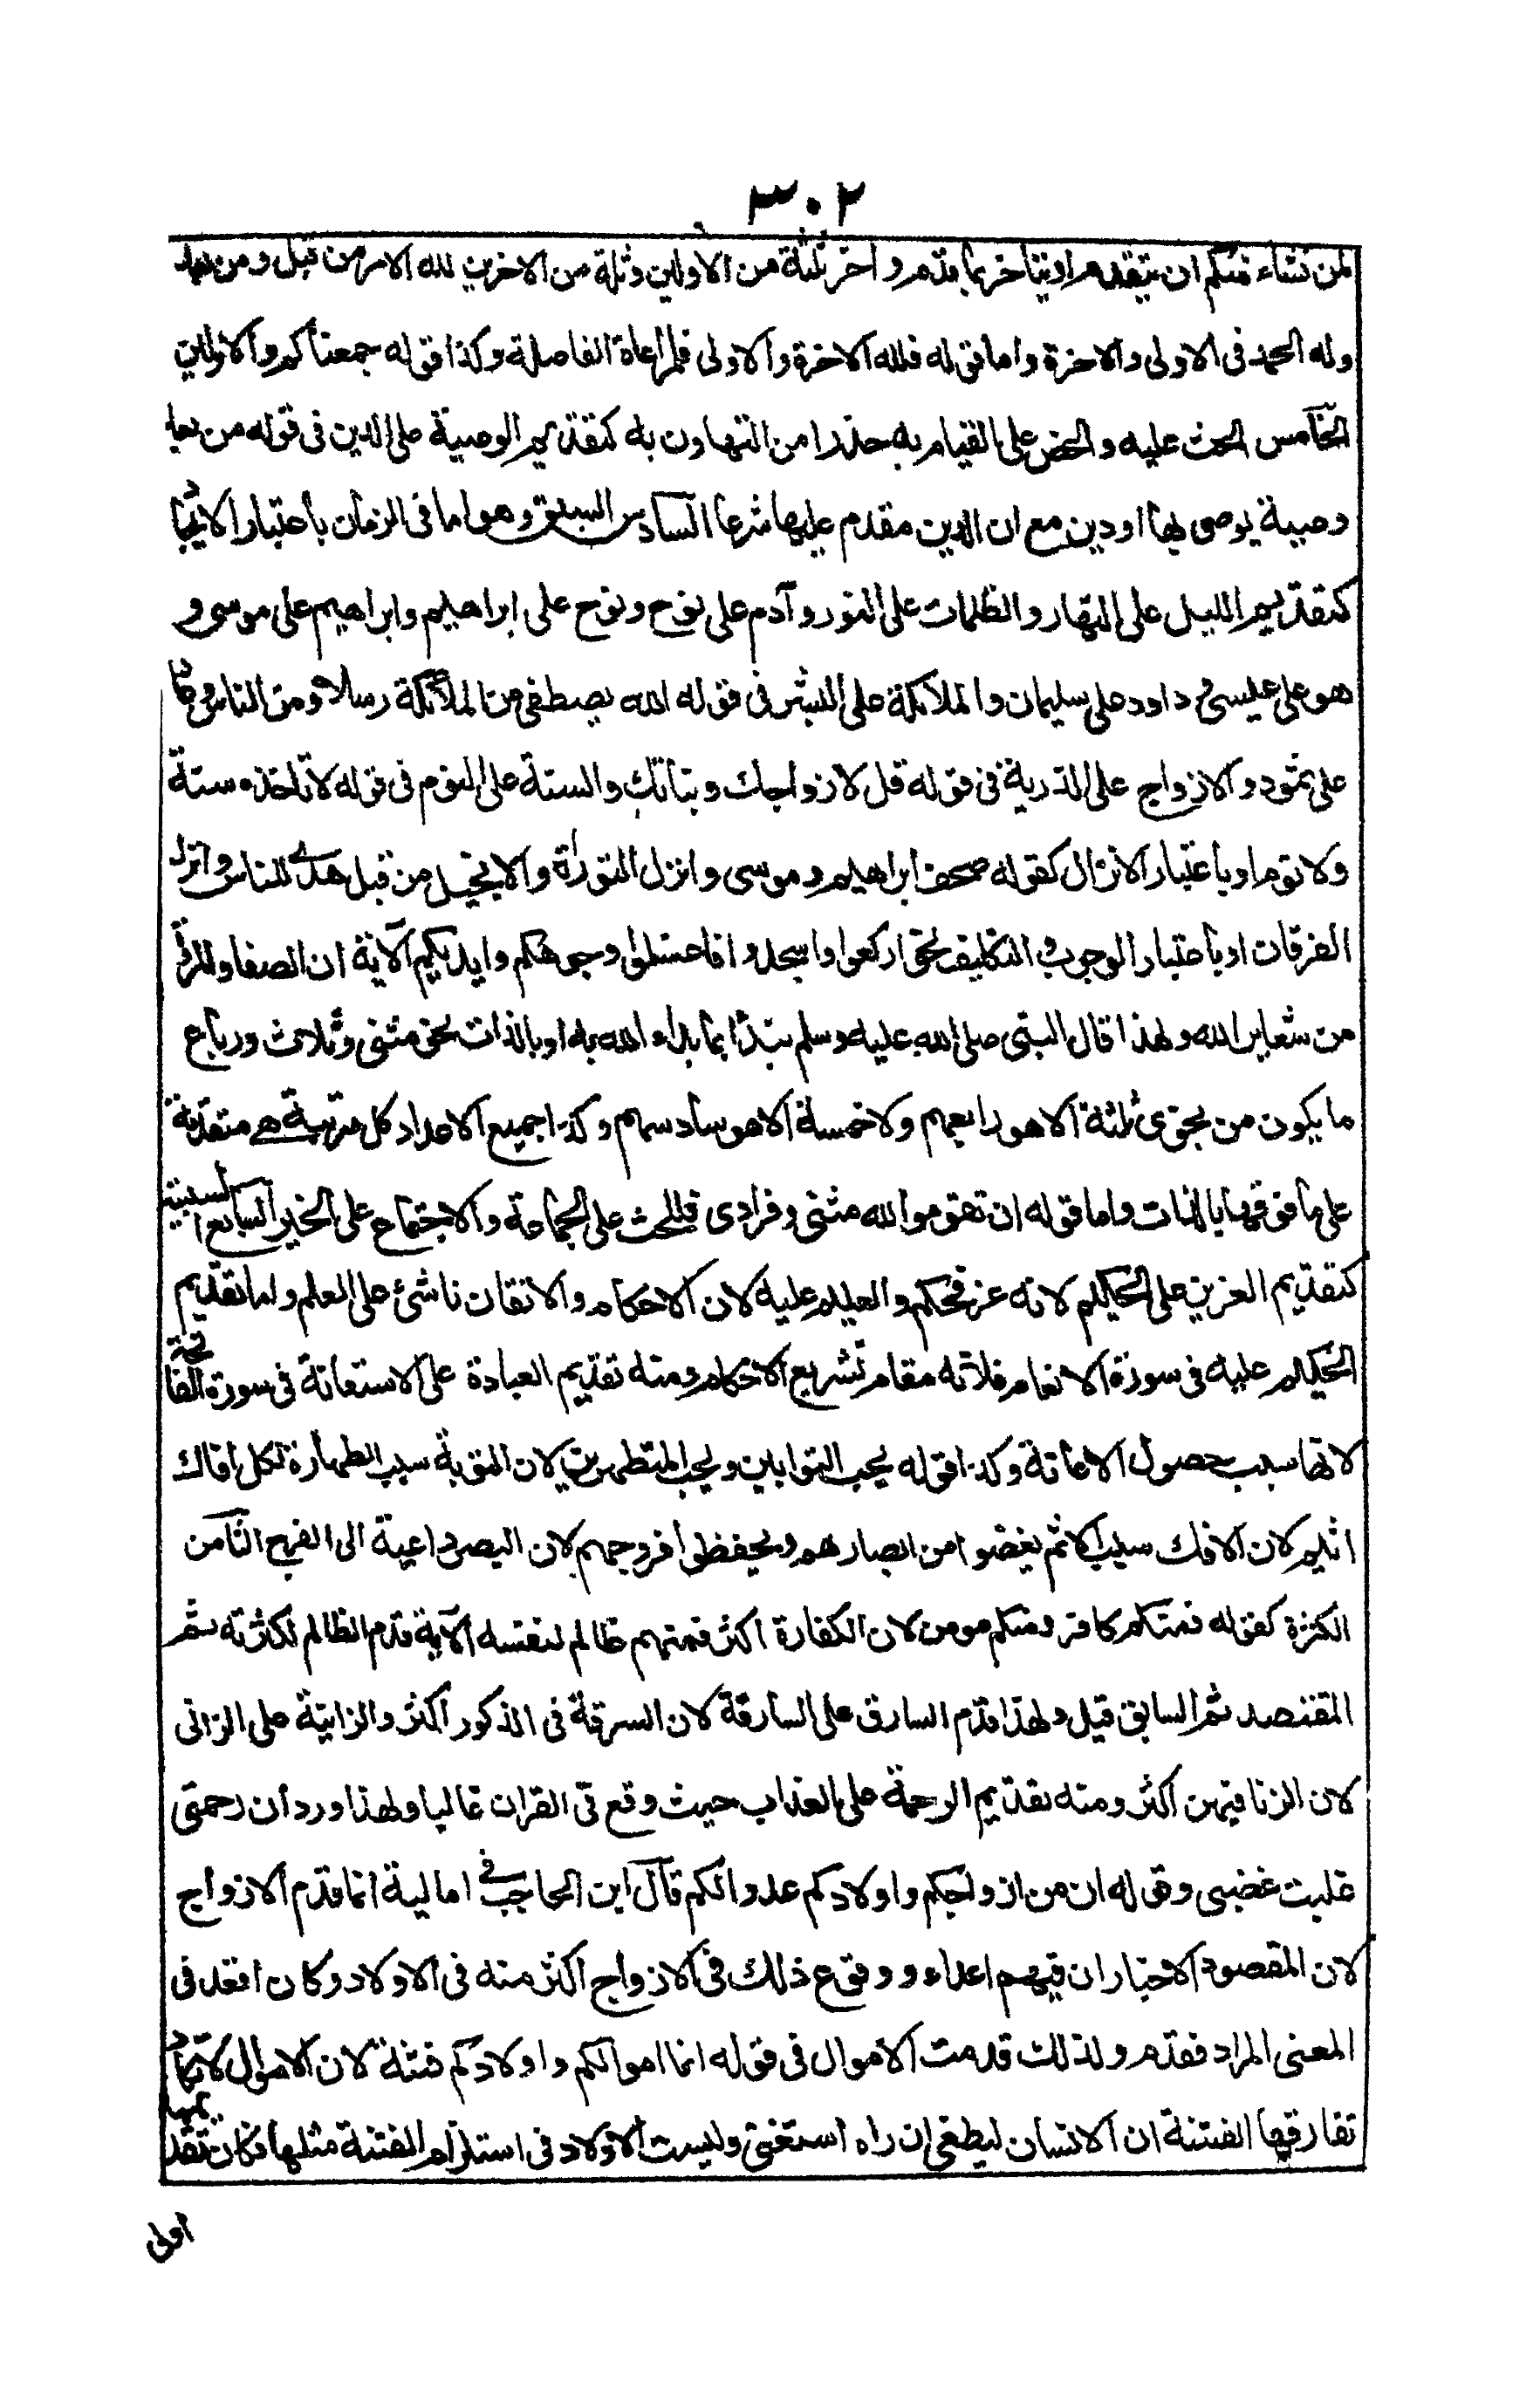 ٣٠٢
لمن شاء منكم ان يتقدم او يتاخر بما قدم و اخر ثلثة من الاولين وثلة من الاخرين لله الامر من قبل ومن بعد
وله الحمد فى الاولى والاخرة واما قوله فلله الاخرة والاولى فلمراعاة الفاصلة وكذا قوله جمعناكم والاولين
الخامس الحث عليه والحض على القيام به حذرا من التهاون به كتقديم الوصية على الدين فى قوله من بعد
وصية يوصى بها او دين مع ان الدين مقدم عليها شرعا السادس السبق وهو اما فى الزمان باعتبار الايجا
كتقديم الليل على النهار والظلمات على النور و آدم على نوح ونوح على ابراهيم وابراهيم على موسى و
هو على عيسى و داود على سليمان والملائكة على البشر فى قوله الله يصطفى من الملائكة رسلا ومن الناس وعاد
على ثمود والازواج على الذرية فى قوله قل لازواجك وبناتك والسنة على النوم فى قوله لا تاخذه سنة
ولا نوم او باعتبار الانزال كقوله صحف ابراهيم وموسى وانزل التورٰة والانجيل من قبل هدى للناس وانزل
الفرقان او باعتبار الوجوب و التكليف نحو اركعوا واسجدوا فاغسلوا وجوهكم وايديكم الآية ان الصفا والمروة
من شعاير الله ولهذا قال النبى صلى الله عليه وسلم نبدأ بما بدأ الله به او بالذات نحو مثنى وثلاث ورباع
ما يكون من نجوى ثلثة الا هو رابعهم ولا خمسة الا هو سادسهم وكذا جميع الاعداد كل مرتبة هى متقدمة
على ما فوقها بالذات واما قوله ان تقوموا لله مثنى وفرادى فللحث على الجماعة والاجتماع على الخير السابع السببية
كتقديم العزيز على الحكيم لانه عز فحكم والعليم عليه لان الاحكام والاتقان ناشئ على العلم واما تقديم
الحكيم عليه فى سورة الانعام فلانه مقام تشريع الاحكام ومنه تقديم العبادة على الاستعانة فى سورة الفاتحة
لانها سبب حصول الاعانة وكذا قوله يحب التوابين ويحب المتطهرين لان التوبة سبب الطهارة لكل افاك
اثيم لان الافك سبب الاثم يغضوا من ابصارهم ويحفظوا فروجهم لان البصر داعية الى الفرج الثامن
الكثرة كقوله فمنكم كافر ومنكم مومن لان الكفارة اكثر فمنهم ظالم لنفسه الآية قدم الظالم لكثرته ثم
المقتصد ثم السابق قيل ولهذا قدم السارق على السارقة لان السرقة فى الذكور اكثر والزانية على الزانى
لان الزنا فيهن اكثر ومنه تقديم الرحمة على العذاب حيث وقع فى القران غالبا ولهذا ورد ان رحمتى
غلبت غضبى وقوله ان من ازواجكم واولادكم عدوا لكم قال ابن الحاجب فى امالية انما قدم الازواج
لان المقصود الاخبار ان فيهم اعداء و وقوع ذلك فى الازواج اكثر منه فى الاولاد وكان اقعد فى
المعنى المراد فقدم ولذلك قدمت الاموال فى قوله انما اموالكم واولادكم فتنة لان الاموال لا تكاد
تفارقها الفتنة ان الانسان ليطغى ان راه استغنى وليست الاولاد فى استلزام الفتنة مثلها فكان تقديمها
اولى